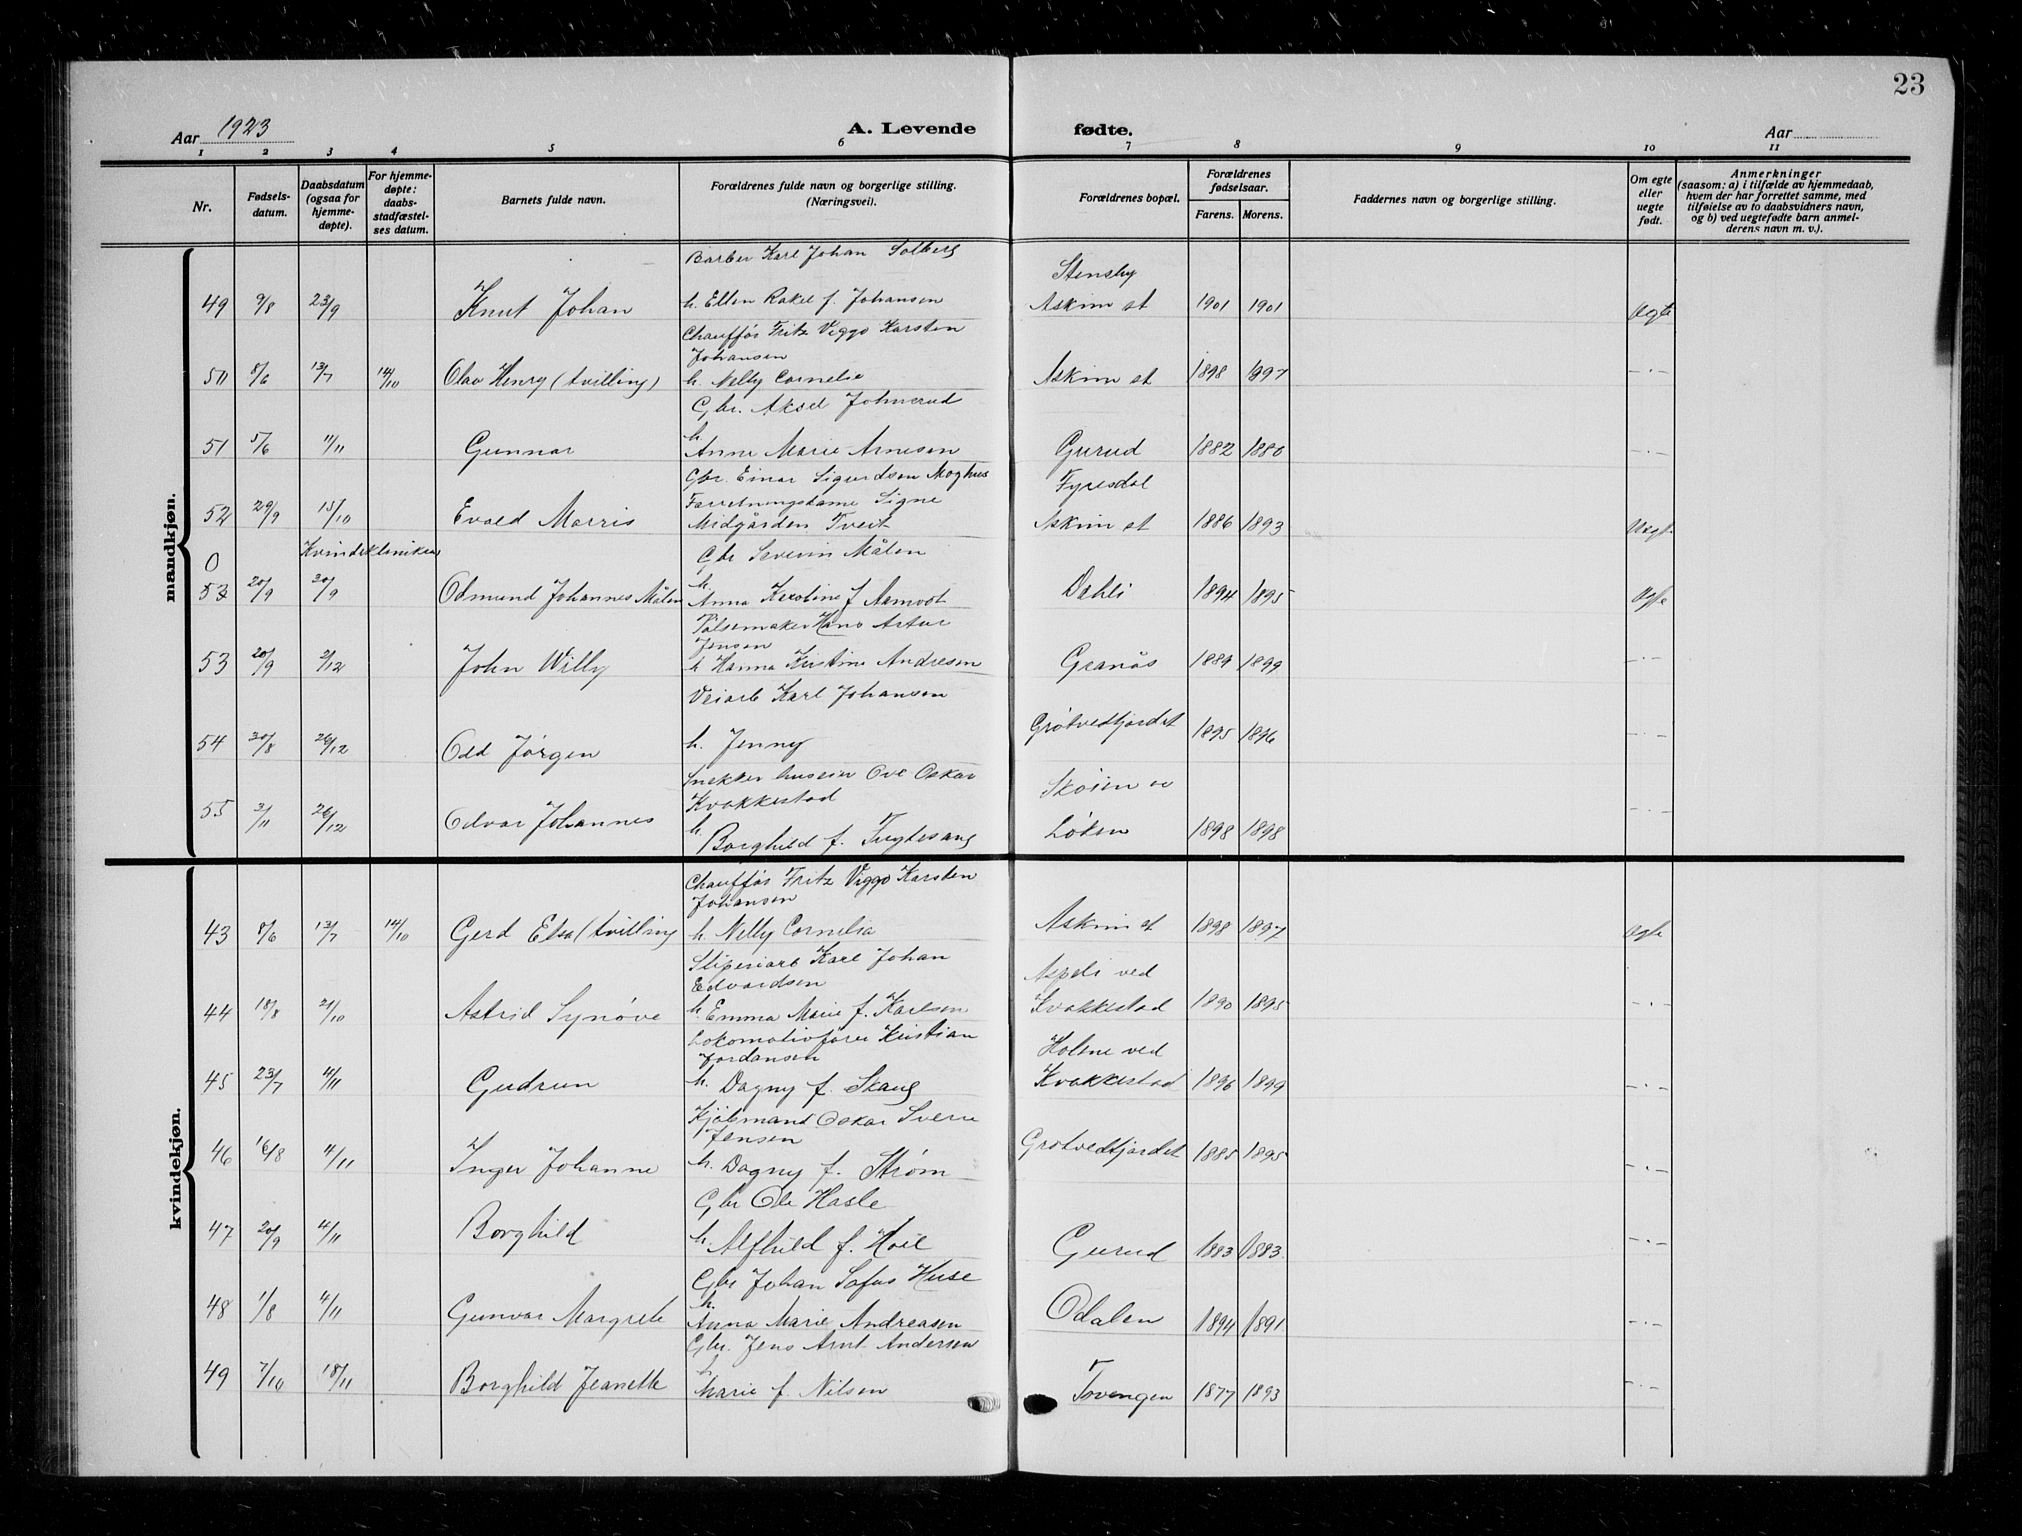 23
Aar 1923
A. Levende fødte.
Aar
1 2 3 4 5 6 7 8 9 10 11
Nr.
Fødsels-
datum.
Daabsdatum
(ogsaa for
hjemme-
døpte).
For hjemme-
døpte:
daabs-
stadfæstel-
ses datum.
Barnets fulde navn.
Forældrenes fulde navn og borgerlige stilling.
(Næringsvei).
Forældrenes bopæl.
Forældrenes
fødselsaar.
Farens. Morens.
Faddernes navn og borgerlige stilling.
Om egte
eller
uegte
født.
Anmerkninger
(saasom: a) i tilfælde av hjemmedaab,
hvem der har forrettet samme, med
tilføielse av to daabsvidners navn,
og b) ved uegtefødte barn anmel-
derens navn m. v.).
mandkjøn.
Barber Karl Johan Solberg
Stensby
49 9/8 23/9 Knut Johan h. Ellen Rakel f. Johansen Askim st 1901 1901 Egte
Chauffør Fritz Viggo Karsten
Johansen
50 8/6 13/7 14/10 Olav Henry (tvilling) h. Nelly Cornelia Askim st 1898 1897 -.-
Gbr. Aksel Johnerud
h.
51 5/6 11/11 Gunnar Anne Marie Arnesen Gurud 1882 1880 -.-
Gbr. Einar Sigurdsen Moghus Fyresdal
Forretningsdame Signe
52 29/9 15/10 Evald Morris Midgården Tveit Askim st 1886 1893 Uegte
0 Kvindekliniken Gbr Severin Målen
h.
53 20/9 30/9 Odmund Johannes Målen Anna Karoline f. Aamodt Dahli 1894 1895 Egte
Pølsemaker Hans Artur
Jensen
53 20/9 2/12 John Willy h Hanna Kristine Andresen Granås 1889 1899 -.-
Veiarb Karl Johansen
54 30/8 26/12 Odd Jørgen h. Jenny Grøtvedtjordet 1895 1896 -.-
Snekker Ove Oskar Skøien
Kvakkestad
h.
55 3/11 26/12 Odvar Johannes Borghild f. Fuglesang Løken 1898 1898 -.-
kvindekjøn.
Chauffør Fritz Viggo Karsten
Johansen
43 8/6 13/7 14/10 Gerd Elsa (tvilling h. Nelly Cornelia Askim st 1898 1897 Egte
Sliperiarb Karl Johan Aspeli ved
Edvardsen
44 18/8 21/10 Astrid Synøve h. Emma Marie f. Karlsen Kvakkestad 1890 1895 -.-
Lokomotivfører Kristian Holene ved
Jordansen
45 23/7 4/11 Gudrun h. Dagny f. Skaug Kvakkestad 1896 1899 -.-
Oskar Sverre
Jensen
46 16/8 4/11 Inger Johanne h. Dagny f. Strøm Grøtvedtjordet 1885 1895 -.-
Gbr Ole Hasle
47 20/9 4/11 Borghild h. Alfhild f. Hoie Gurud 1883 1883 -.-
Gbr Johan Sofus Huse
h.
48 1/8 4/11 Gunvor Margrete Anna Marie Andreasen Odalen 1894 1891 -.-
Gbr. Jens Arnt Andersen
h
49 7/10 18/11 Borghild Jeanette Marie f. Nilsen Tovengen 1877 1893 -.-